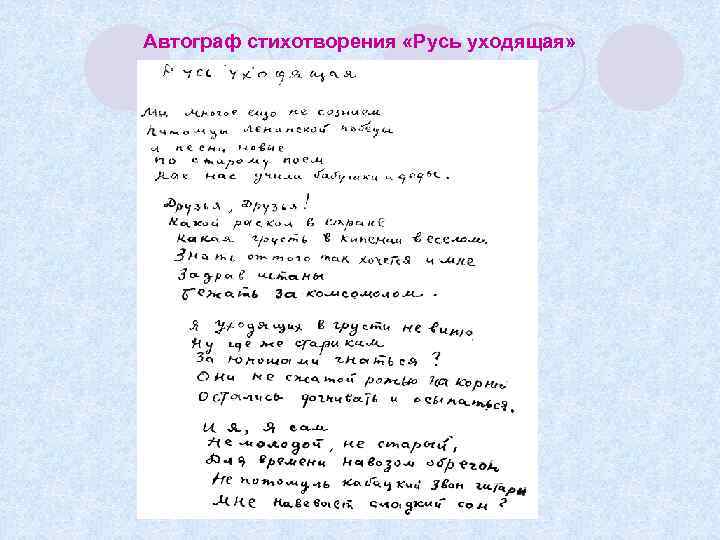 Автограф стихотворения «Русь уходящая»
Русь уходящая
Мы многое ещо не сознаем
Питомцы ленинской победы
И песни новые
По старому поем
Как нас учили бабушки и деды.
Друзья, Друзья!
Какой раскол в стране
Какая грусть в кипении веселом.
Знать оттого так хочется и мне
Задрав штаны
Бежать за комсомолом.
Я уходящих в грусти не виню
Ну где же старикам
За юношами гнаться?
Они не сжатой рожью на корню
Остались догнивать и осыпаться.
И я, я сам
Не молодой, не старый,
Для времени навозом обречен
Не потомуль кабацкий звон гитары
Мне навевает сладкий сон?